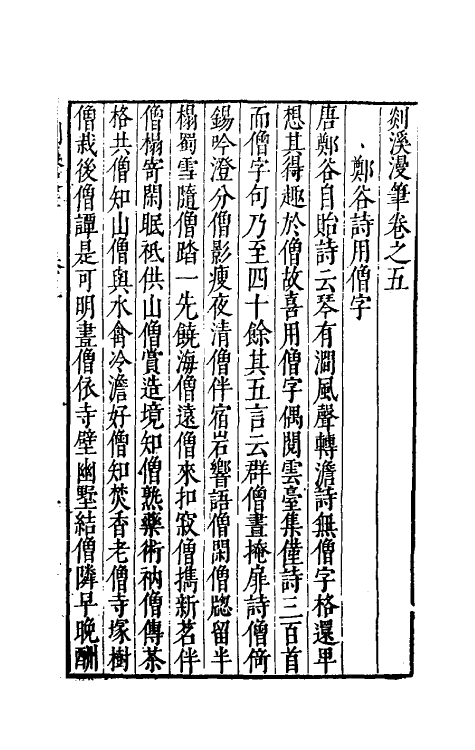 剡溪漫筆卷之五
鄭谷詩用僧字
唐鄭谷自貽詩云琴有澗風聲轉澹詩無僧字格還卑
想其得趣於僧故喜用僧字偶閱雲臺集僅詩三百首
而僧字句乃至四十餘其五言云群僧晝掩扉詩僧倚
錫吟澄分僧影瘦夜清僧伴宿岩響語僧閑僧牕留半
榻蜀雪隨僧踏一先饒海僧遠僧來扣寂僧擕新茗伴
僧榻寄閑眠祗供山僧賞造境知僧熟藥術衲僧傳茶
格共僧知山僧與水禽冷澹好僧知焚香老僧寺塚樹
僧栽後僧譚是可明晝僧依寺壁幽墅結僧隣早晚酬